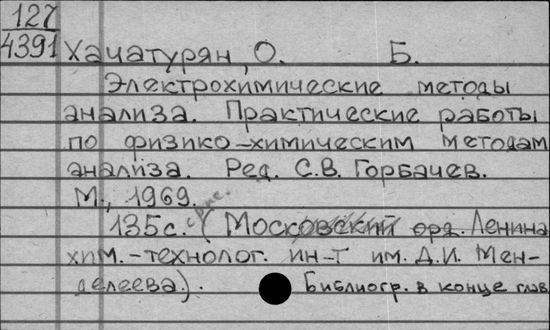 127
4391
Хачатурян, О. Б.
Электрохимические методы
анализа. Практические работы
по физико-химическим методам
анализа. Ред. С.В. Горбачев.
М., 1969.
135с. (Московский орд. Ленина
хим.-технолог. ин-т им. Д.И. Мен-
делеева).
Библиогр. в конце глав